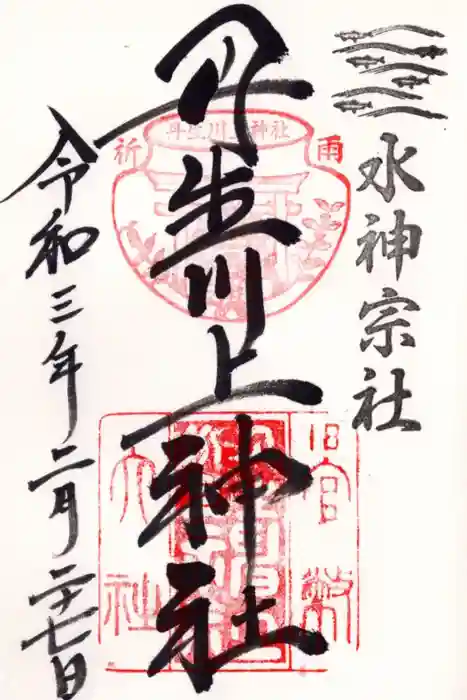 水神宗社
丹生川上神社
祈雨
丹生川上神社
旧官幣
大社
令和三年二月二十七日